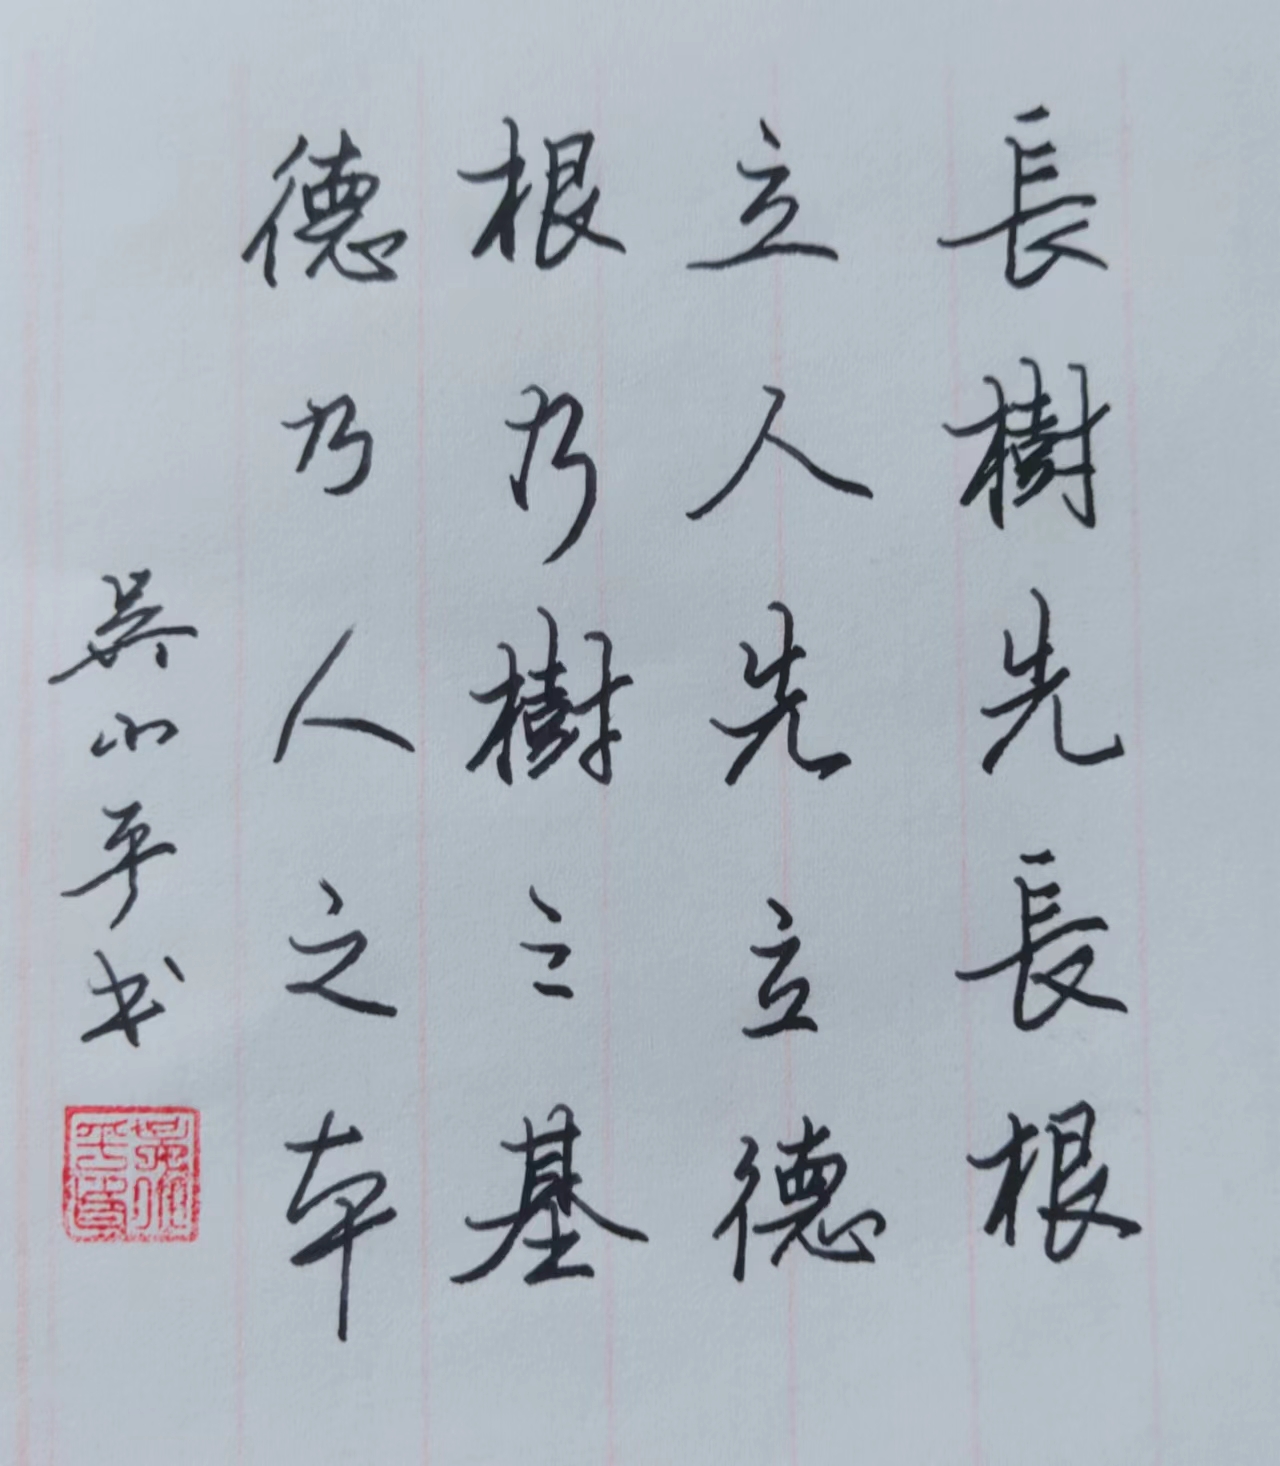 長樹先長根
立人先立德
根乃樹之基
德乃人之本
吳小平书